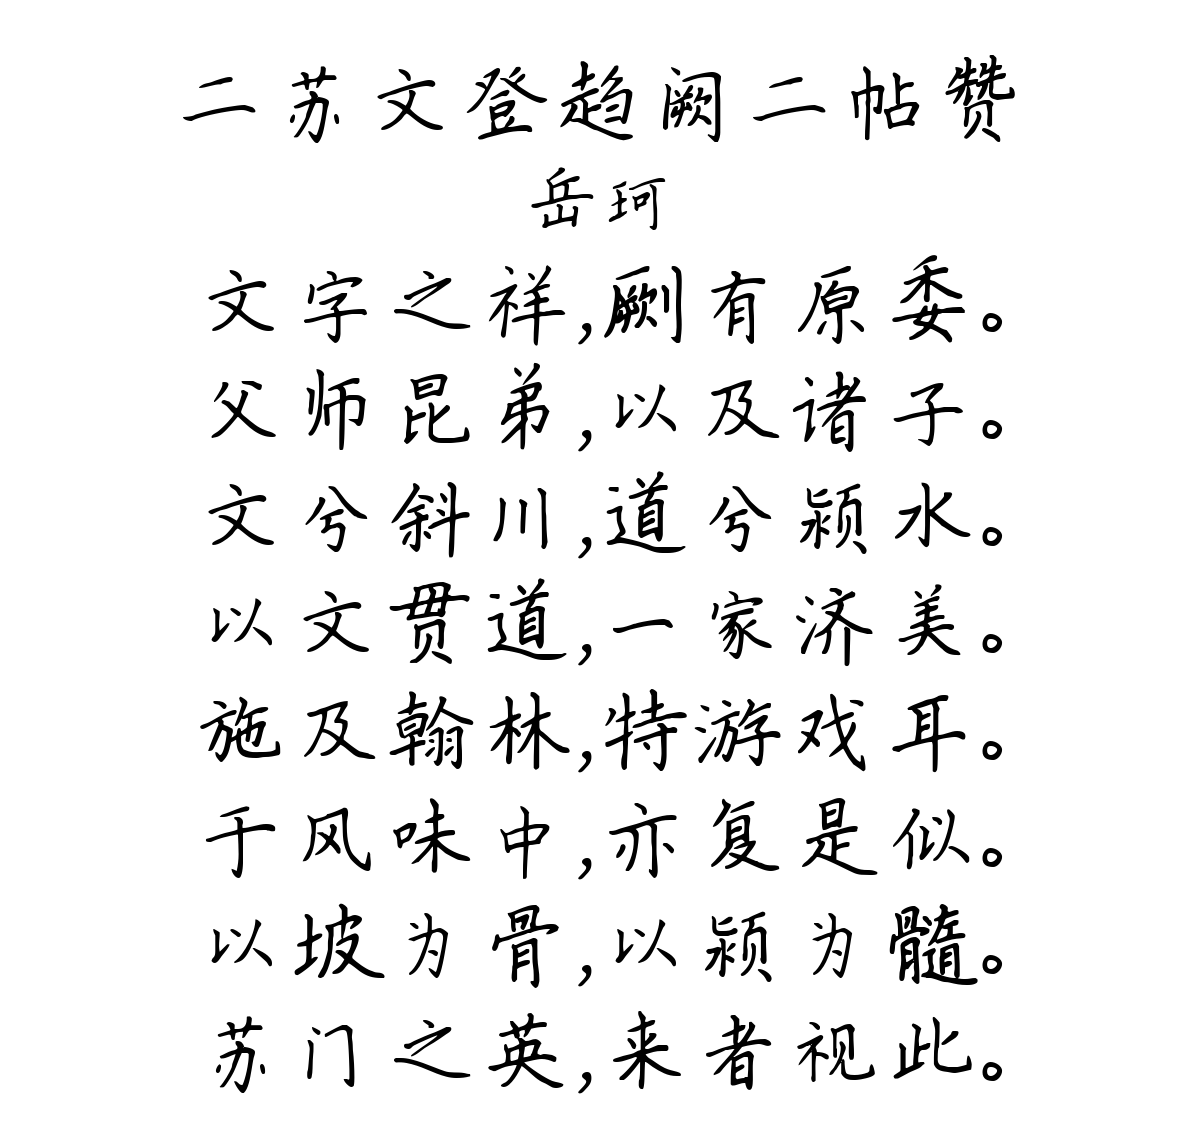 二苏文登趋阙二帖赞
岳珂
文字之祥,劂有原委。
父师昆弟,以及诸子。
文兮斜川,道兮颍水。
以文贯道,一家济美。
施及翰林,特游戏耳。
于风味中,亦复是似。
以坡为骨,以颍为髓。
苏门之英,来者视此。